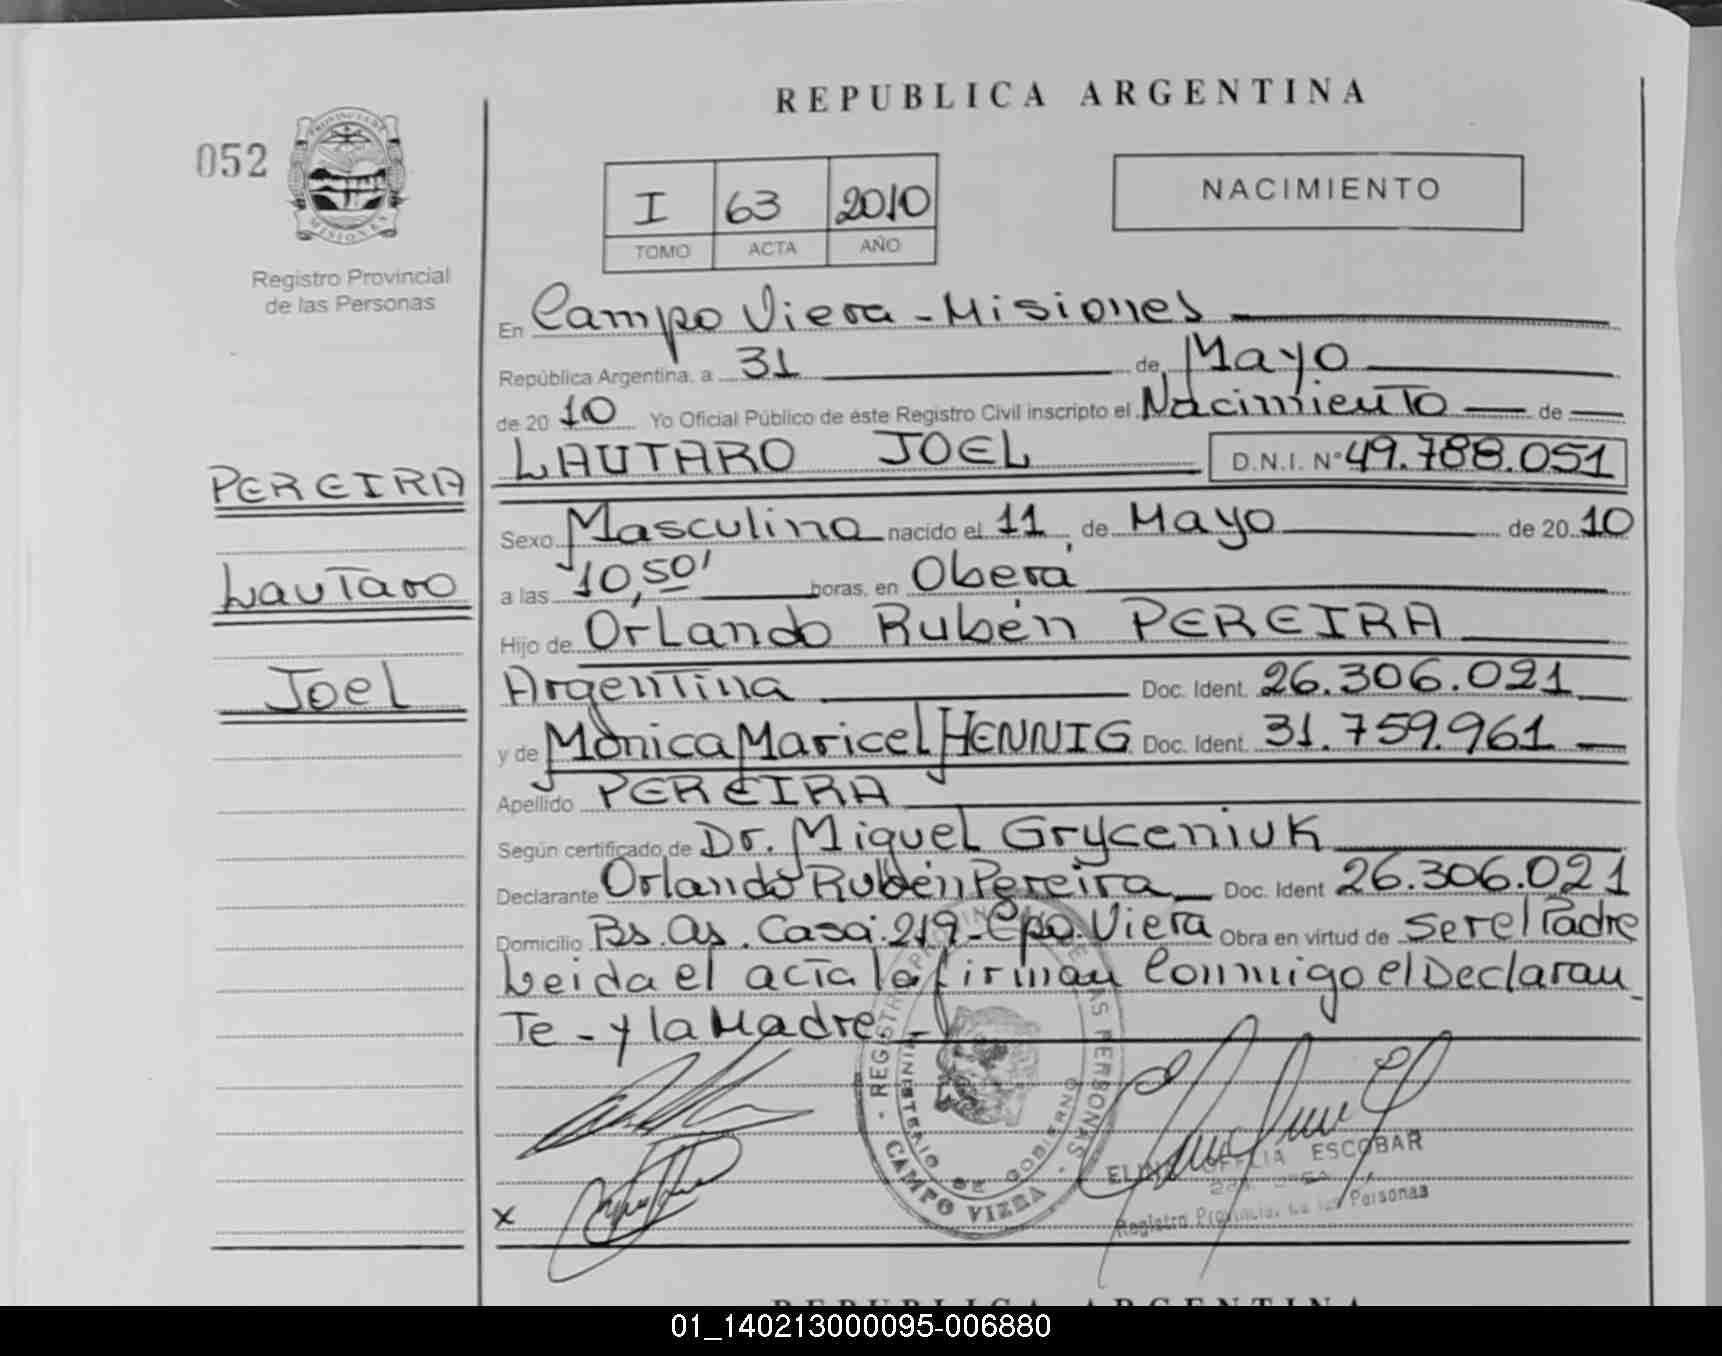 REPUBLICA ARGENTINA
052
PROVINCIA DE
MISIONES
Registro Provincial
de las Personas
I 63 2010
TOMO ACTA AÑO
NACIMIENTO
En Campo Viera - Misiones
República Argentina, a 31 de Mayo
de 2010 Yo Oficial Público de éste Registro Civil inscripto el Nacimiento de
LAUTARO JOEL D.N.I. N° 49.788.051
PEREIRA
Lautaro
Joel
Sexo Masculino nacido el 11 de Mayo de 2010
a las 10,50' horas, en Oberá
Hijo de Orlando Rubén PEREIRA
Argentina Doc. Ident. 26.306.021
y de Mónica Maricel HENNIG Doc. Ident. 31.759.961
Apellido PEREIRA
Según certificado de Dr. Miguel Gryceniuk
Declarante Orlando Rubén Pereira Doc. Ident 26.306.021
Domicilio Bs. As. Casa: 219 - Cpo. Viera Obra en virtud de ser el Padre
Leida el acta la firman Conmigo el Declaran
Te - y la Madre -
REGISTRO PROVINCIAL DE LAS PERSONAS
MINISTERIO DE GOBIERNO
CAMPO VIERA
x
ESCOBAR
Registro Provincial de las Personas
REPUBLICA ARGENTINA
01_140213000095-006880